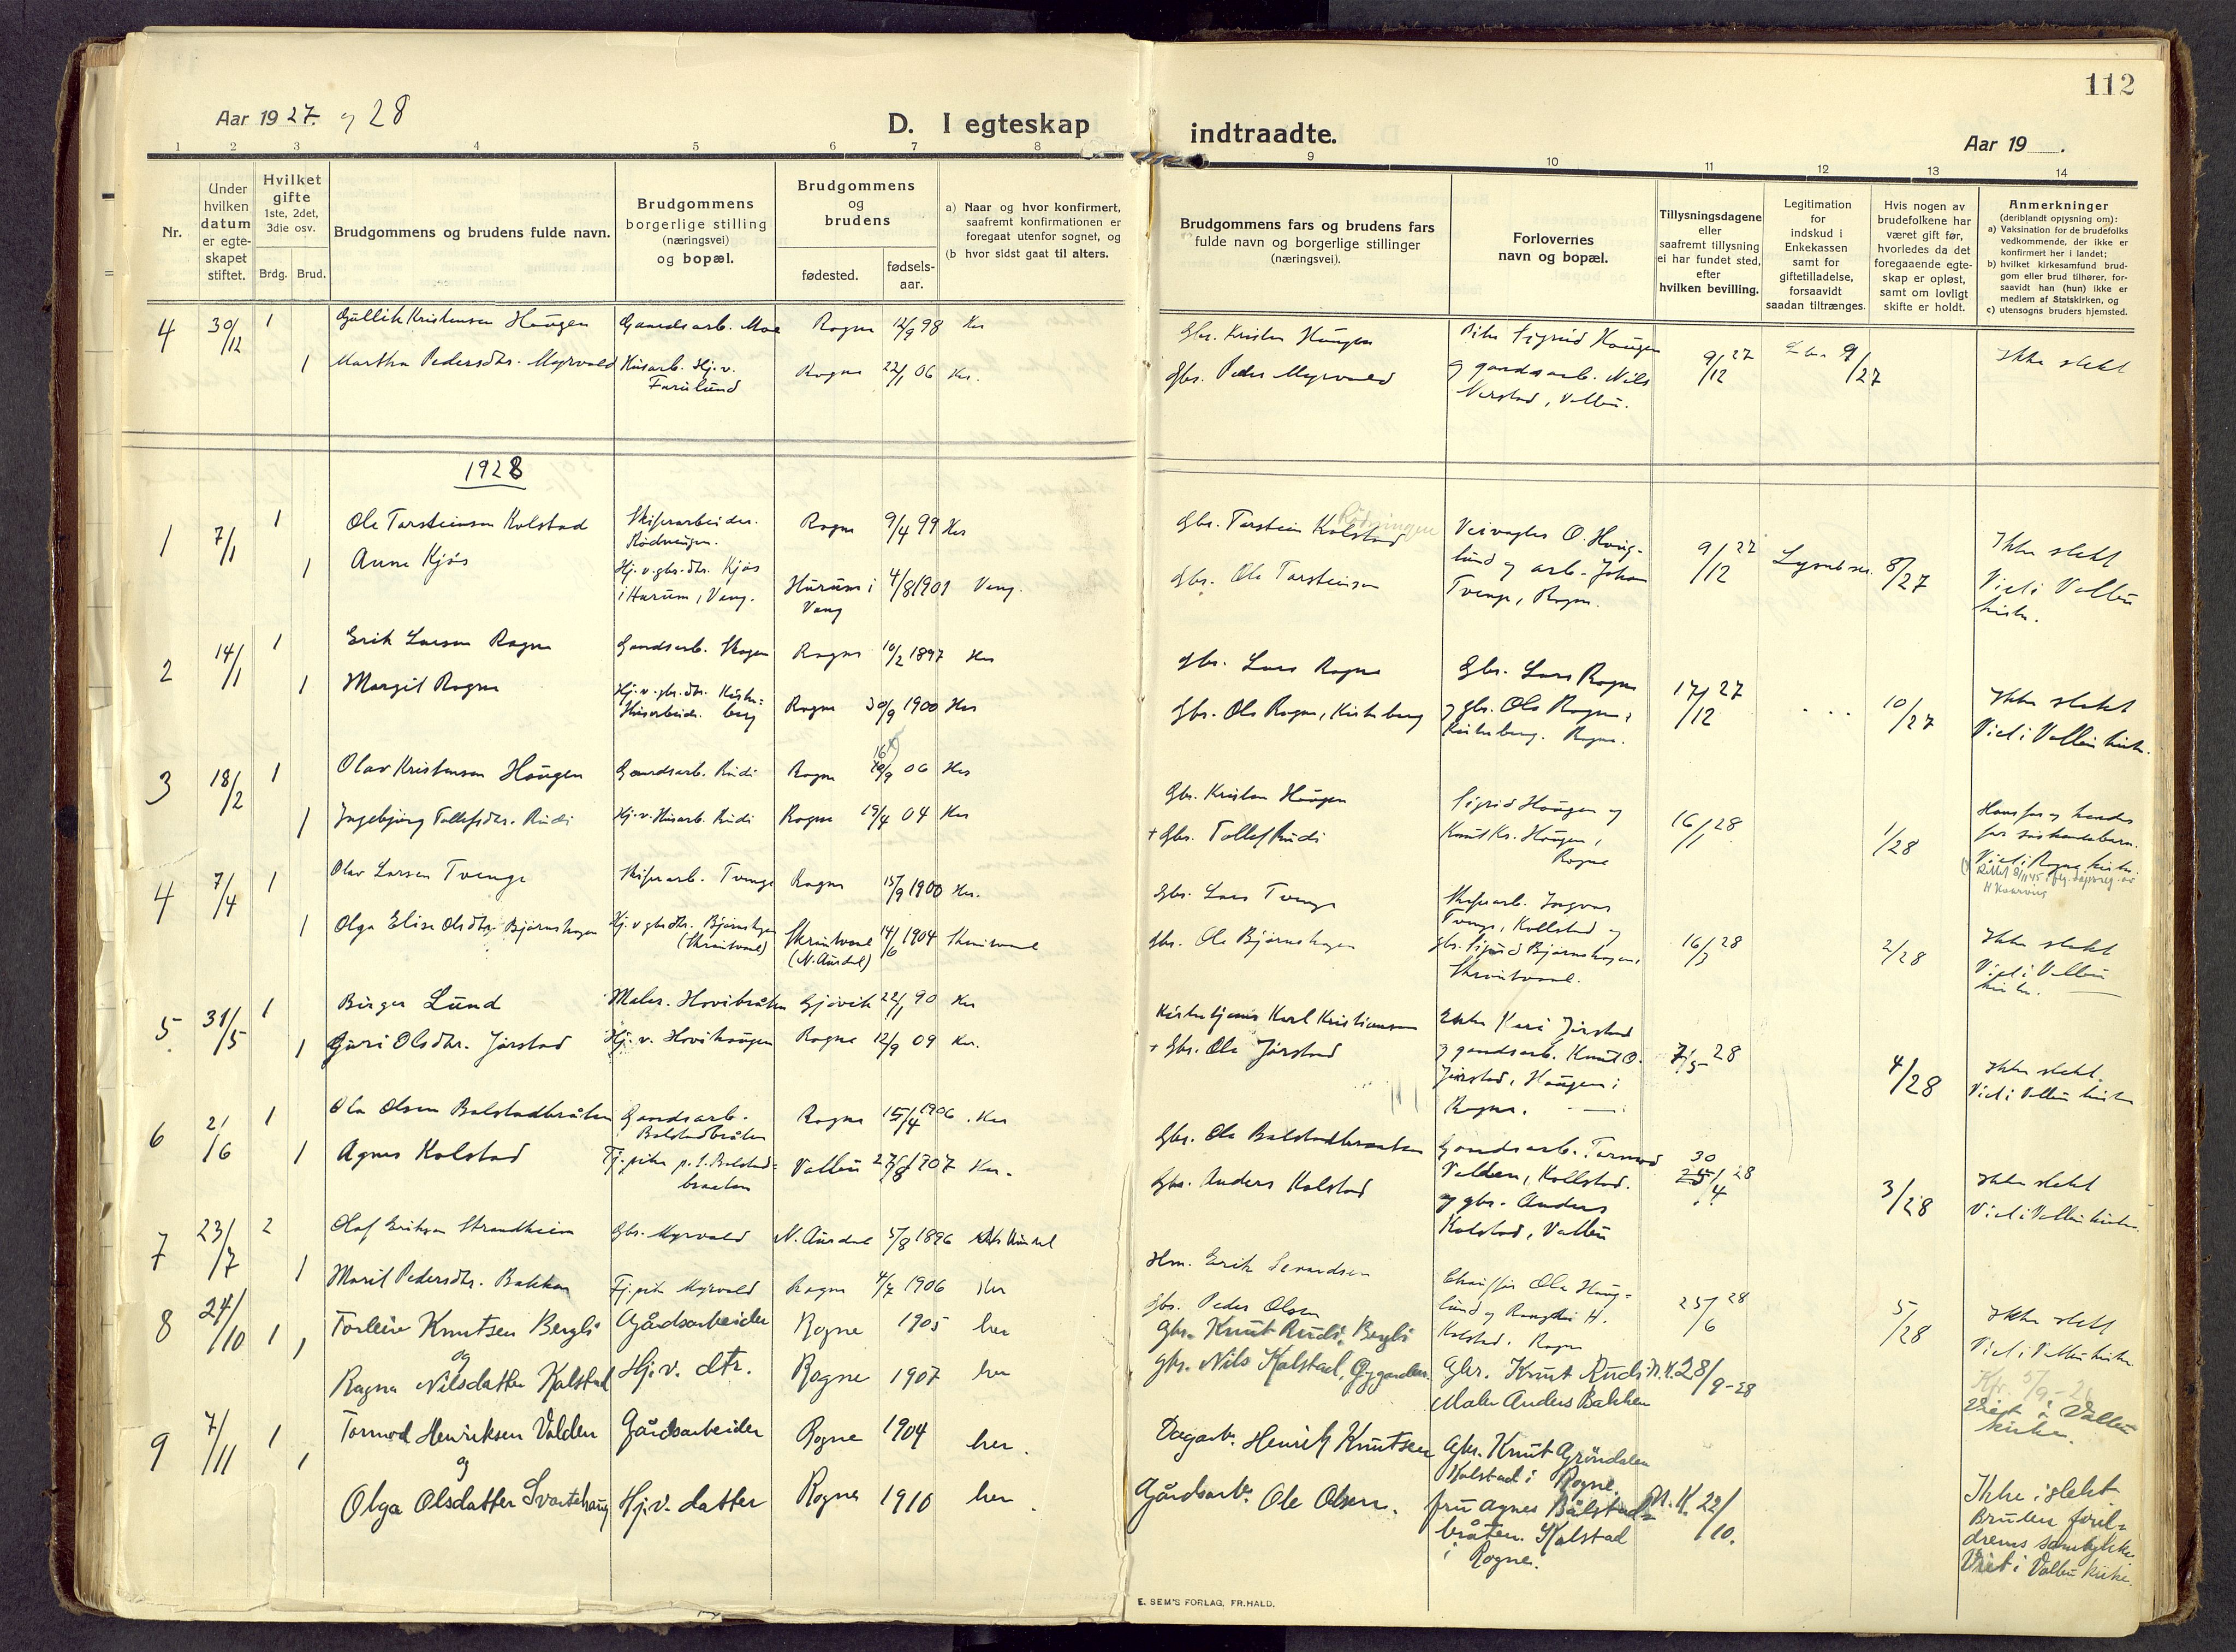 112
Aar 1927. og 28
D. I egteskap
indtraadte.
Aar 19 .
1 2 3 4 5 6 7 8
9 10 11 12 13 14
Nr.
Under hvilken datum er egte-skapet stiftet.
Hvilket gifte
1ste, 2det, 3die osv.
Brdg. Brud.
Brudgommens og brudens fulde navn.
Brudgommens borgerlige stilling (næringsvei) og bopæl.
Brudgommens og brudens
fødested.
fødsels-aar.
a) Naar og hvor konfirmert, saafremt konfirmationen er foregaat utenfor sognet, og
(b hvor sidst gaat til alters.
Brudgommens fars og brudens fars fulde navn og borgerlige stillinger (næringsvei).
Forlovernes navn og bopæl.
Tillysningsdagene eller saafremt tillysning ei har fundet sted, efter hvilken bevilling.
Legitimation for indskud i Enkekassen samt for giftetilladelse, forsaavidt saadan tiltrænges.
Hvis nogen av brudefolkene har været gift før, hvorledes da det foregaaende egte-skap er opløst, samt om lovligt skifte er holdt.
Anmerkninger
(deriblandt oplysning om):
a) Vaksination for de brudefolks vedkommende, der ikke er konfirmert her i landet;
b) hvilket kirkesamfund brud-gom eller brud tilhører, for-saavidt han (hun) ikke er medlem af Statskirken, og
c) utensogns bruders hjemsted.
4 30/12 1 Gullik Kristensen Haugen Gaardsarb. Moe Rogne 12/9 98 Her
Gbr. Kristen Haugen
1 Martha Pedersdtr. Myrvold Husarb. Hj.v. Furulund Rogne 22/1 06 Her.
Gbr. Peder Myrvold
Sigrid Haugen
og gaardsarb. Nils
, Volbu.
9/12 27
9/27
Ikke slekt
1928
1 7/1 1 Ole Torsteinsen Kolstad Skiferarbeider. Rogne 9/4 99 Her
Gbr. Torstein Kolstad
1 Anne Kjøs Hj.v. gbr.dtr. Kjøs i Hurum, Vang. Hurum i Vang 4/8 1901 Vang.
Gbr. Ole Torsteinsen
Veivogter O. Haug-
lund og arb. Johan
Tvenge, Rogne.
9/12 27
8/27
Ikke slekt
Viet i Volbu
kirke.
2 14/1 1 Erik Larsen Rogne Gaardsarb. Skogen Rogne 10/2 1897 Her
Gbr. Lars Rogne
1 Margit Rogne Hj.v. gbr.dtr. Rogne 30/9 1900 Her
Gbr. Ole Rogne, Kirkeberg
Gbr. Lars Rogne
og gbr. Ole Rogne,
Kirkeberg. Rogne.
17/12 27
10/27
Ikke slekt
Viet i Volbu kirke.
3 18/2 1 Olav Kristensen Haugen Gaardsarb. Rudi Rogne 06 Her
Gbr. Kristen Haugen
1 Ingebjørg Tollefsdtr. Rudi Hj.v. Husarb. Rudi Rogne 19/4 04 Her
+ Gbr. Tollef Rudi
Sigrid Haugen og
Knut Kr. Haugen,
Rogne
16/1 28
1/28
Hans far og hendes
far søskendebarn.
Viet i Rogne kirke.
4 7/4 1 Olav Larsen Tvenge Skiferarb. Tvenge Rogne 15/9 1900 Her.
Gbr. Lars Tvenge
1 Olga Elise Olsdtr. Bjørnshagen Hj.v. gbrdtr. Bjørnshagen (Skrautvaal) Skrautvaal (N. Aurdal) 14/6 1904 Skrautvaal
Gbr. Ole Bjørnshagen
Skiferarb. Ingvar
Tvenge, Kollstad og
gbr. Sigurd Bjørnshagen,
Skrautvaal.
16/3 28
2/28
Ikke slekt
Viet i Volbu
kirke.
5 31/5 1 Birger Lund Maler. Hovibråten Gjøvik 22/1 90 Her
Karl Kristiansen
1 Guri Olsdtr. Jarstad Hj.v. Hovihaugen Rogne 12/9 09 Her.
+ Gbr. Ole Jarstad
Enke Kari Jarstad
og gaardsarb. Knut O.
Jarstad, Haugen i
Rogne.
7/5 28
4/28
Ikke slekt.
Viet i Volbu kirke
6 2/6 1 Ole Olsen Bolstadbråten Gaardsarb. Bolstadbråten Rogne 15/4 1906. Her
Gbr. Ole Bolstadbraaten
1 Agnes Kolstad Volbu 1907 Her.
Gbr. Anders Kolstad
Gaardsarb. Tormod
Volden, Kollstad.
og gbr. Anders
Kolstad, Volbu
30/4 28
3/28
Ikke slekt
Viet i Volbu kirke.
7 23/7 2 Olaf Eriksen Strandheim Gbr. Myrvold N. Aurdal 5/8 1896
Erik Sevardsen
1 Marit Pedersdtr. Bakken Myrvold Rogne 4/7 1906 Her
Gbr. Peder Olsen
Chauffør Ole Haug-
lund og H.
Kolstad. Rogne
25/6 28
5/28
Ikke slekt
Viet i Volbu kirke
8 24/10 1 1 Torleiv Knutsen Bergli Gårdsarbeider Rogne 1905 her
Gbr. Knut Rudi, Bergli
og
Ragna Nilsdatter Kolstad Hj.v. dtr. Rogne 1907 her
gbr. Nils Kolstad,
Gbr. Knut Rudi
Maler Anders Bakken
N.K. 28/9-28
Viet i Volbu
kirke.
9 7/11 1 1 Tormod Henriksen Volden Gårdsarbeider Rogne 1904 her.
Dagarb. Henrik Knutsen
og
Olga Olsdatter Svartehaug Hj.v. datter Rogne 1910 her.
Gårdsarb. Ole Olsen.
Gbr. Knut Gröndalen
Kolstad i Rogne.
fru Agnes Bålstad=
bråten. Kolstad
i Rogne.
N.K. 22/10.
Ikke i slekt
Bruden foreldrenes samtykke
Viet i Volbu kirke.
E. SEM'S FORLAG, FR.HALD.